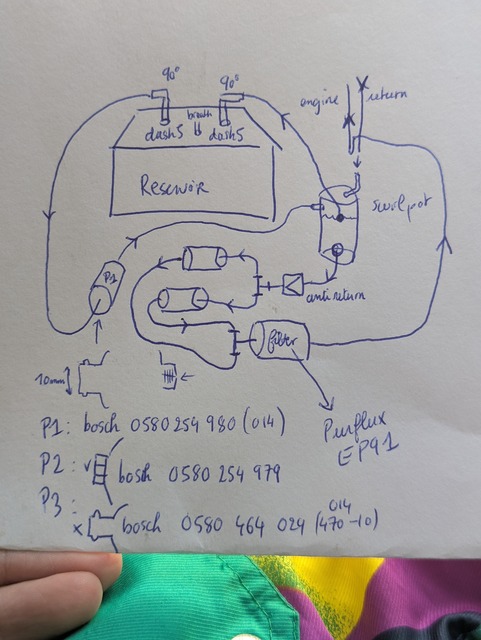 90° 90°
engine return
breath
dash5 dash5
Reservoir
swirlpot
P1
antireturn
filter
10mm
Purflux
EP91
P1: bosch 0580 254 980 (014)
P2: v bosch 0580 254 979
P3:
014
x bosch 0580 464 024 (470-10)